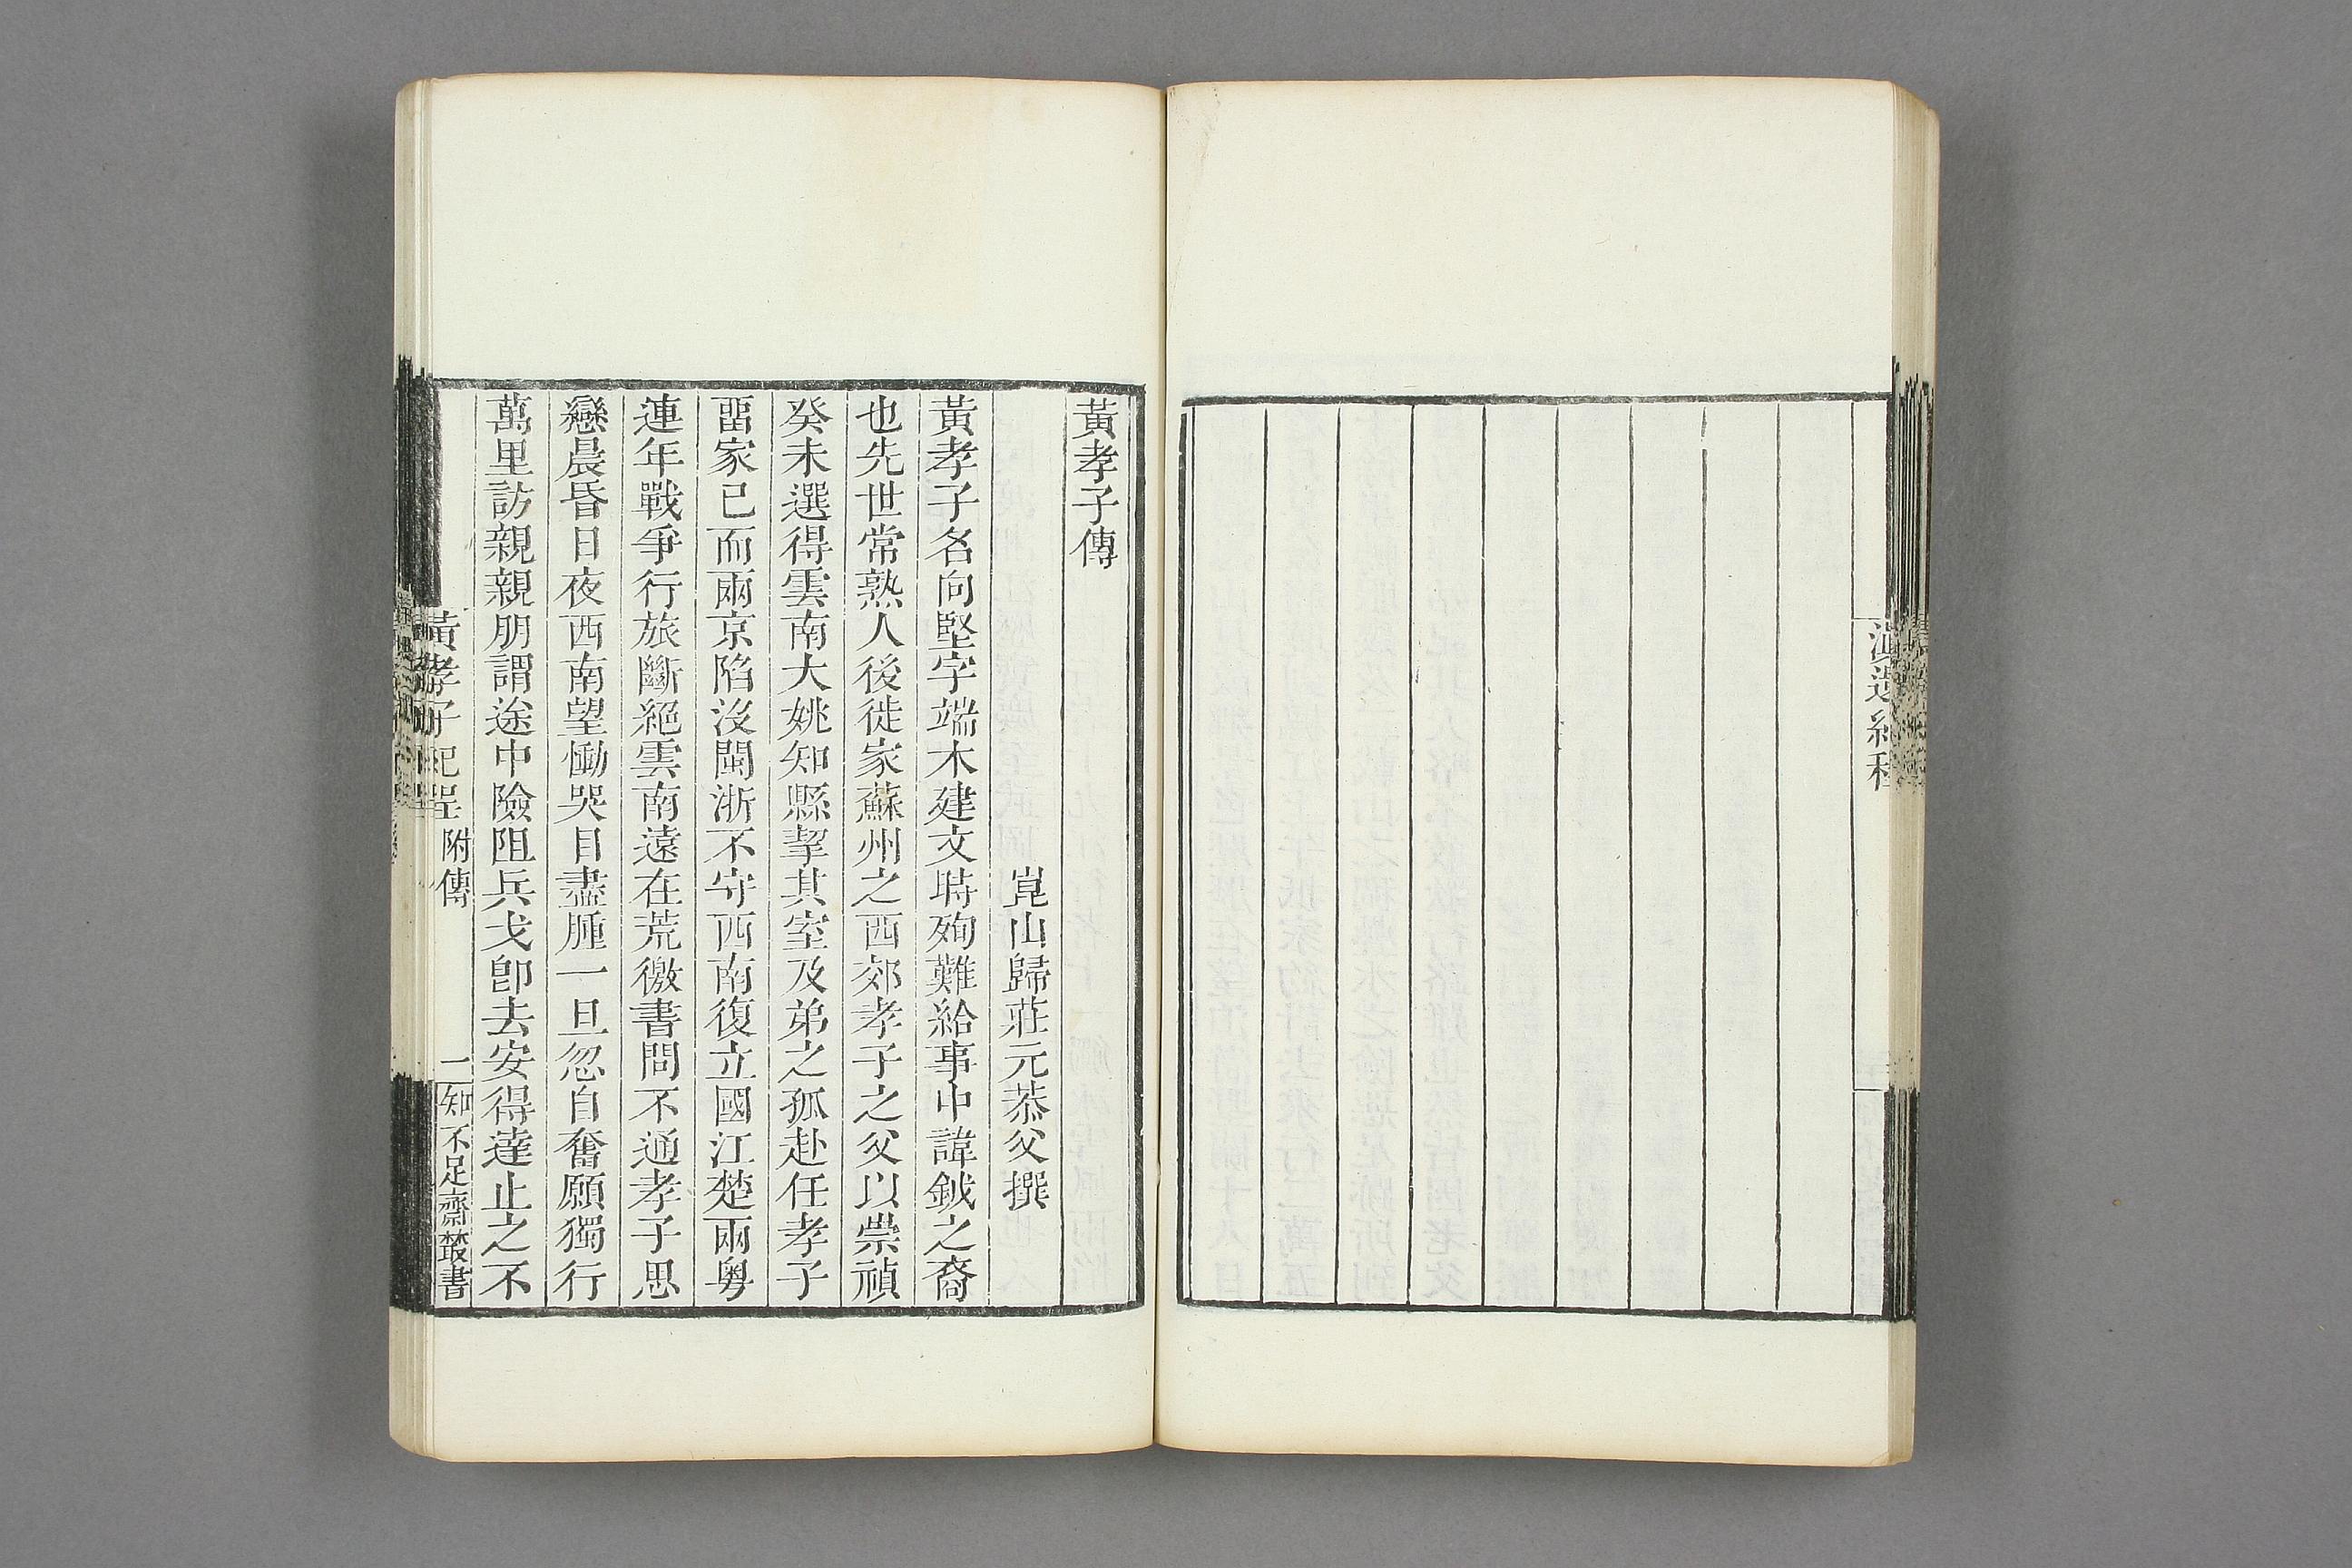 滇還紀程
黃孝子傳
崑山歸莊元恭父撰
黃孝子名向堅字端木建文時殉難給事中諱鉞之裔
也先世常熟人後徙家蘇州之西郊孝子之父以崇禎
癸未選得雲南大姚知縣挈其室及弟之孤赴任孝子
畱家已而兩京陷沒閩浙不守西南復立國江楚兩粵
連年戰爭行旅斷絕雲南遠在荒徼書問不通孝子思
戀晨昏日夜西南望慟哭目盡腫一旦忽自奮願獨行
萬里訪親親朋謂途中險阻兵戈卽去安得達止之不
黃孝子紀程 附傳 一 知不足齋叢書